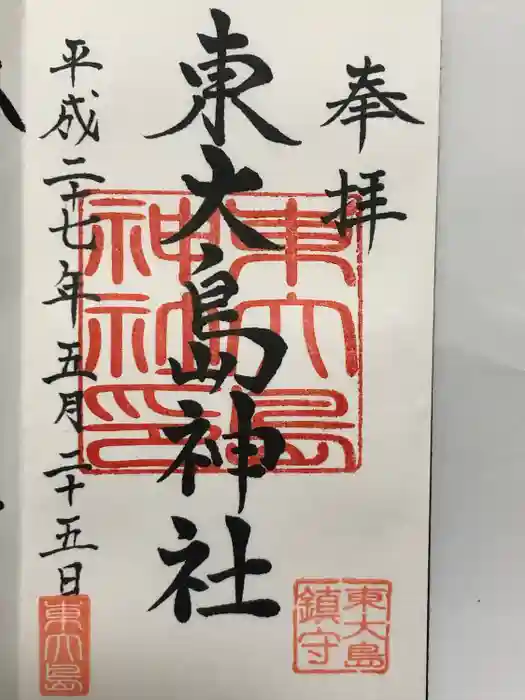 奉拝
東大島神社
平成二十七年五月二十五日
東大島神社印
東大島鎮守
東大島